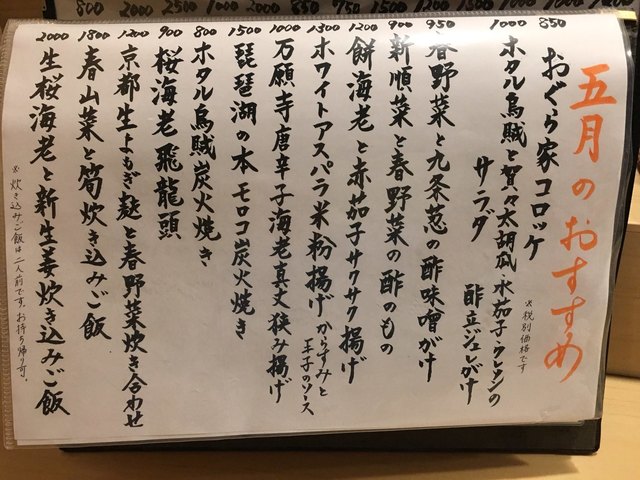 五月のおすすめ
※税別価格です
850
おぐら家コロッケ
1000
ホタル烏賊と賀々太胡瓜、水茄子、クレソンの
サラダ 酢立ジュレがけ
950
春野菜と九条葱の酢味噌がけ
900
新順菜と春野菜の酢のもの
1200
餅海老と赤茄子サクサク揚げ
1300
ホワイトアスパラ米粉揚げ からすみと
玉子のソース
1000
万願寺唐辛子海老真丈挟み揚げ
1500
琵琶湖の本モロコ炭火焼き
800
ホタル烏賊炭火焼き
900
桜海老飛龍頭
1200
京都生よもぎ麩と春野菜炊き合わせ
1800
春山菜と筍炊き込みご飯
2000
生桜海老と新生姜炊き込みご飯
※炊き込みご飯は二人前です。お持ち帰り可。